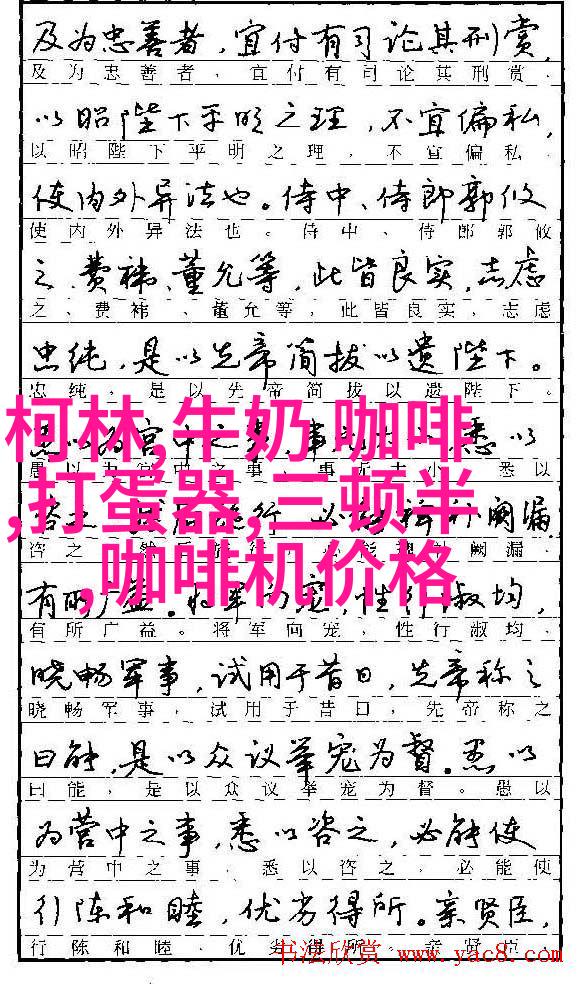 及为忠善者，宜付有司论其刑赏，
及为忠善者，宜付有司论其刑赏，
以昭陛下平明之理，不宜偏私，
以昭陛下平明之理，不宜偏私，
使内外异法也。侍中、侍郎郭攸
使内外异法也。侍中、侍郎郭攸
之、费祎、董允等，此皆良实，志虑
之、费祎、董允等，此皆良实，志虑
忠纯，是以先帝简拔以遗陛下。
忠纯，是以先帝简拔以遗陛下。
柯林,牛奶 咖啡
以为宫中之事，事 悉以
愚以为宫中之事，事无大小，悉以
,打蛋器,三顿半
咨之 阙漏，
咨之 阙漏，
,咖啡机价格
有所广益。将军向宠，性行淑均，
有所广益。将军向宠，性行淑均，
晓畅军事，试用于昔日，先帝称之
晓畅军事，试用于昔日，先帝称之
曰能，是以众议举宠为督。愚以
曰能，是以众议举宠为督。愚以
为营中之事，悉以咨之，必能使
为营中之事，悉以咨之，必能使
行陈和睦，优劣得所。亲贤臣，
行陈和睦，优劣得所。亲贤臣，
书法欣赏 www.yac8.com